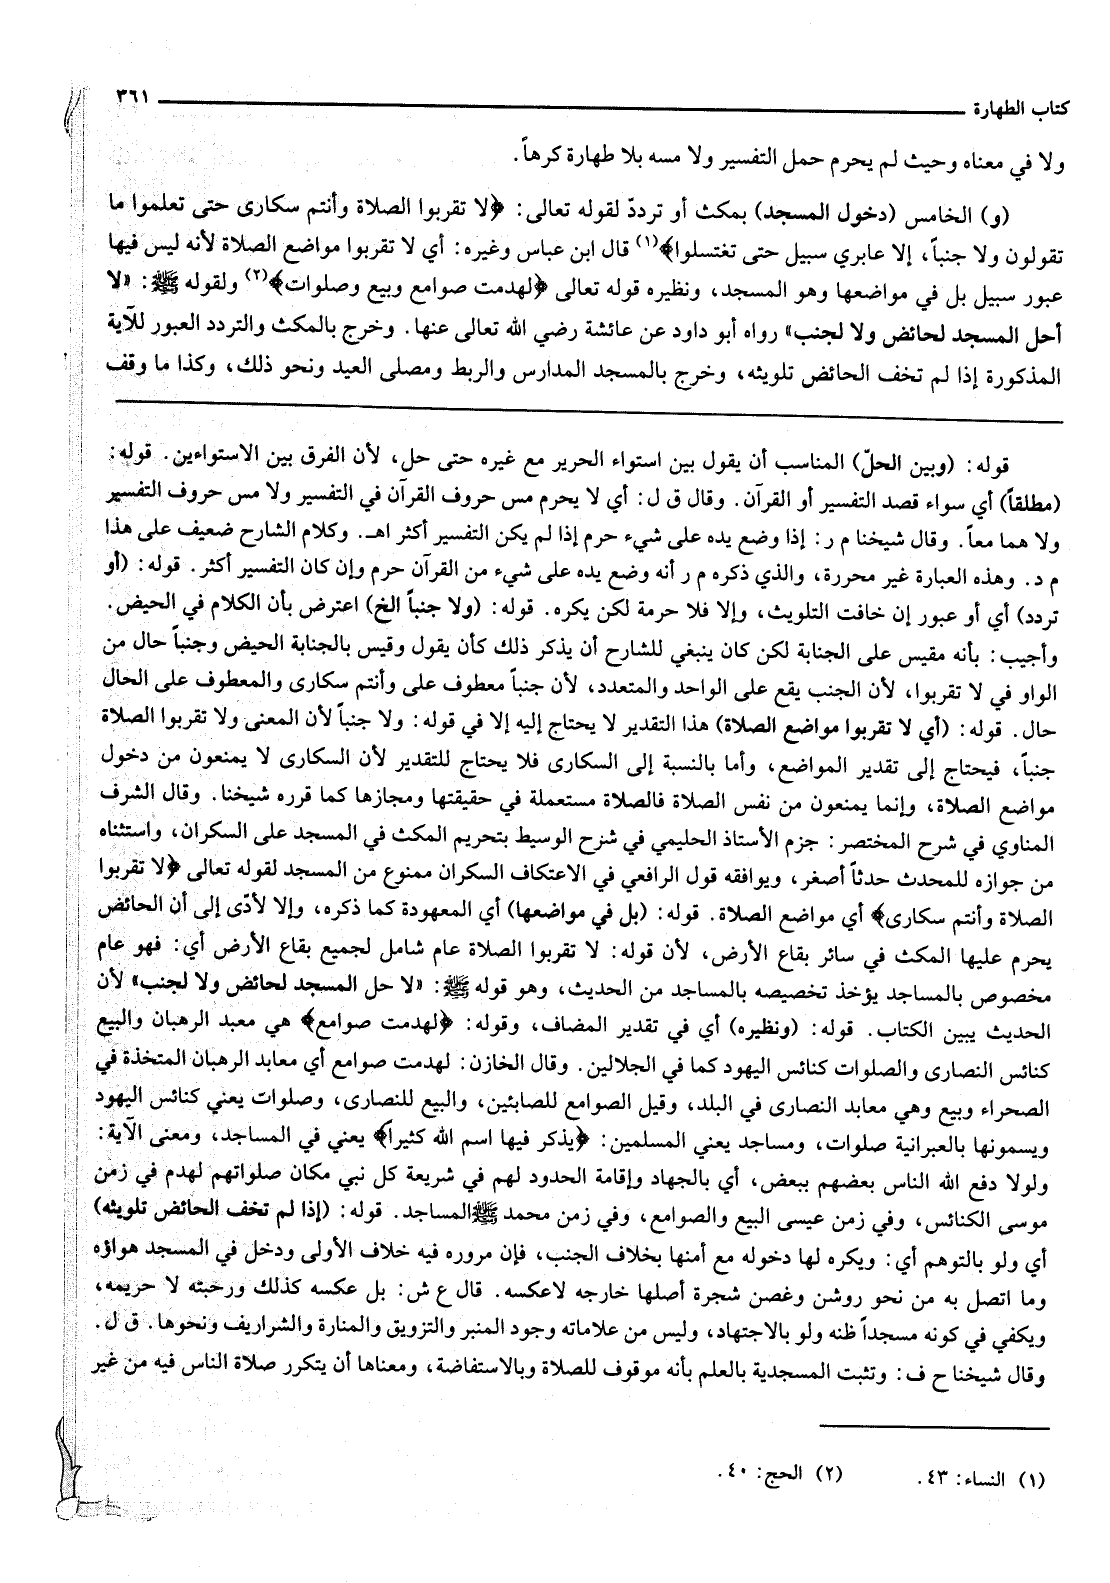 كتاب الطهارة ٣٦١
ولا في معناه وحيث لم يحرم حمل التفسير ولا مسه بلا طهارة كرهاً.
(و) الخامس (دخول المسجد) بمكث أو تردد لقوله تعالى: ﴿لا تقربوا الصلاة وأنتم سكارى حتى تعلموا ما
تقولون ولا جنباً، إلا عابري سبيل حتى تغتسلوا﴾(١) قال ابن عباس وغيره: أي لا تقربوا مواضع الصلاة لأنه ليس فيها
عبور سبيل بل في مواضعها وهو المسجد، ونظيره قوله تعالى ﴿لهدمت صوامع وبيع وصلوات﴾(٢) ولقوله ﷺ: «لا
أحل المسجد لحائض ولا لجنب» رواه أبو داود عن عائشة رضي الله تعالى عنها. وخرج بالمكث والتردد العبور للآية
المذكورة إذا لم تخف الحائض تلويثه، وخرج بالمسجد المدارس والربط ومصلى العيد ونحو ذلك، وكذا ما وقف
قوله: (وبين الحلّ) المناسب أن يقول بين استواء الحرير مع غيره حتى حل، لأن الفرق بين الاستواءين. قوله:
(مطلقاً) أي سواء قصد التفسير أو القرآن. وقال ق ل: أي لا يحرم مس حروف القرآن في التفسير ولا مس حروف التفسير
ولا هما معاً. وقال شيخنا م ر: إذا وضع يده على شيء حرم إذا لم يكن التفسير أكثر اهـ. وكلام الشارح ضعيف على هذا
م د. وهذه العبارة غير محررة، والذي ذكره م ر أنه وضع يده على شيء من القرآن حرم وإن كان التفسير أكثر. قوله: (أو
تردد) أي أو عبور إن خافت التلويث، وإلا فلا حرمة لكن يكره. قوله: (ولا جنباً الخ) اعترض بأن الكلام في الحيض.
وأجيب: بأنه مقيس على الجنابة لكن كان ينبغي للشارح أن يذكر ذلك كأن يقول وقيس بالجنابة الحيض وجنباً حال من
الواو في لا تقربوا، لأن الجنب يقع على الواحد والمتعدد، لأن جنباً معطوف على وأنتم سكارى والمعطوف على الحال
حال. قوله: (أي لا تقربوا مواضع الصلاة) هذا التقدير لا يحتاج إليه إلا في قوله: ولا جنباً لأن المعنى ولا تقربوا الصلاة
جنباً، فيحتاج إلى تقدير المواضع، وأما بالنسبة إلى السكارى فلا يحتاج للتقدير لأن السكارى لا يمنعون من دخول
مواضع الصلاة، وإنما يمنعون من نفس الصلاة فالصلاة مستعملة في حقيقتها ومجازها كما قرره شيخنا. وقال الشرف
المناوي في شرح المختصر: جزم الأستاذ الحليمي في شرح الوسيط بتحريم المكث في المسجد على السكران، واستثناه
من جوازه للمحدث حدثاً أصغر، ويوافقه قول الرافعي في الاعتكاف السكران ممنوع من المسجد لقوله تعالى ﴿لا تقربوا
الصلاة وأنتم سكارى﴾ أي مواضع الصلاة. قوله: (بل في مواضعها) أي المعهودة كما ذكره، وإلا لأدّى إلى أن الحائض
يحرم عليها المكث في سائر بقاع الأرض، لأن قوله: لا تقربوا الصلاة عام شامل لجميع بقاع الأرض أي: فهو عام
مخصوص بالمساجد يؤخذ تخصيصه بالمساجد من الحديث، وهو قوله ﷺ: «لا حل المسجد لحائض ولا لجنب» لأن
الحديث يبين الكتاب. قوله: (ونظيره) أي في تقدير المضاف، وقوله: ﴿لهدمت صوامع﴾ هي معبد الرهبان والبيع
كنائس النصارى والصلوات كنائس اليهود كما في الجلالين. وقال الخازن: لهدمت صوامع أي معابد الرهبان المتخذة في
الصحراء وبيع وهي معابد النصارى في البلد، وقيل الصوامع للصابئين، والبيع للنصارى، وصلوات يعني كنائس اليهود
ويسمونها بالعبرانية صلوات، ومساجد يعني المسلمين: ﴿يذكر فيها اسم الله كثيراً﴾ يعني في المساجد، ومعنى الآية:
ولولا دفع الله الناس بعضهم ببعض، أي بالجهاد وإقامة الحدود لهم في شريعة كل نبي مكان صلواتهم لهدم في زمن
موسى الكنائس، وفي زمن عيسى البيع والصوامع، وفي زمن محمد ﷺ المساجد. قوله: (إذا لم تخف الحائض تلويثه)
أي ولو بالتوهم أي: ويكره لها دخوله مع أمنها بخلاف الجنب، فإن مروره فيه خلاف الأولى ودخل في المسجد هواؤه
وما اتصل به من نحو روشن وغصن شجرة أصلها خارجه لاعكسه. قال ع ش: بل عكسه كذلك ورحبته لا حريمه،
ويكفي في كونه مسجداً ظنه ولو بالاجتهاد، وليس من علاماته وجود المنبر والتزويق والمنارة والشراريف ونحوها. ق ل.
وقال شيخنا ح ف: وتثبت المسجدية بالعلم بأنه موقوف للصلاة وبالاستفاضة، ومعناها أن يتكرر صلاة الناس فيه من غير
(١) النساء: ٤٣. (٢) الحج: ٤٠.